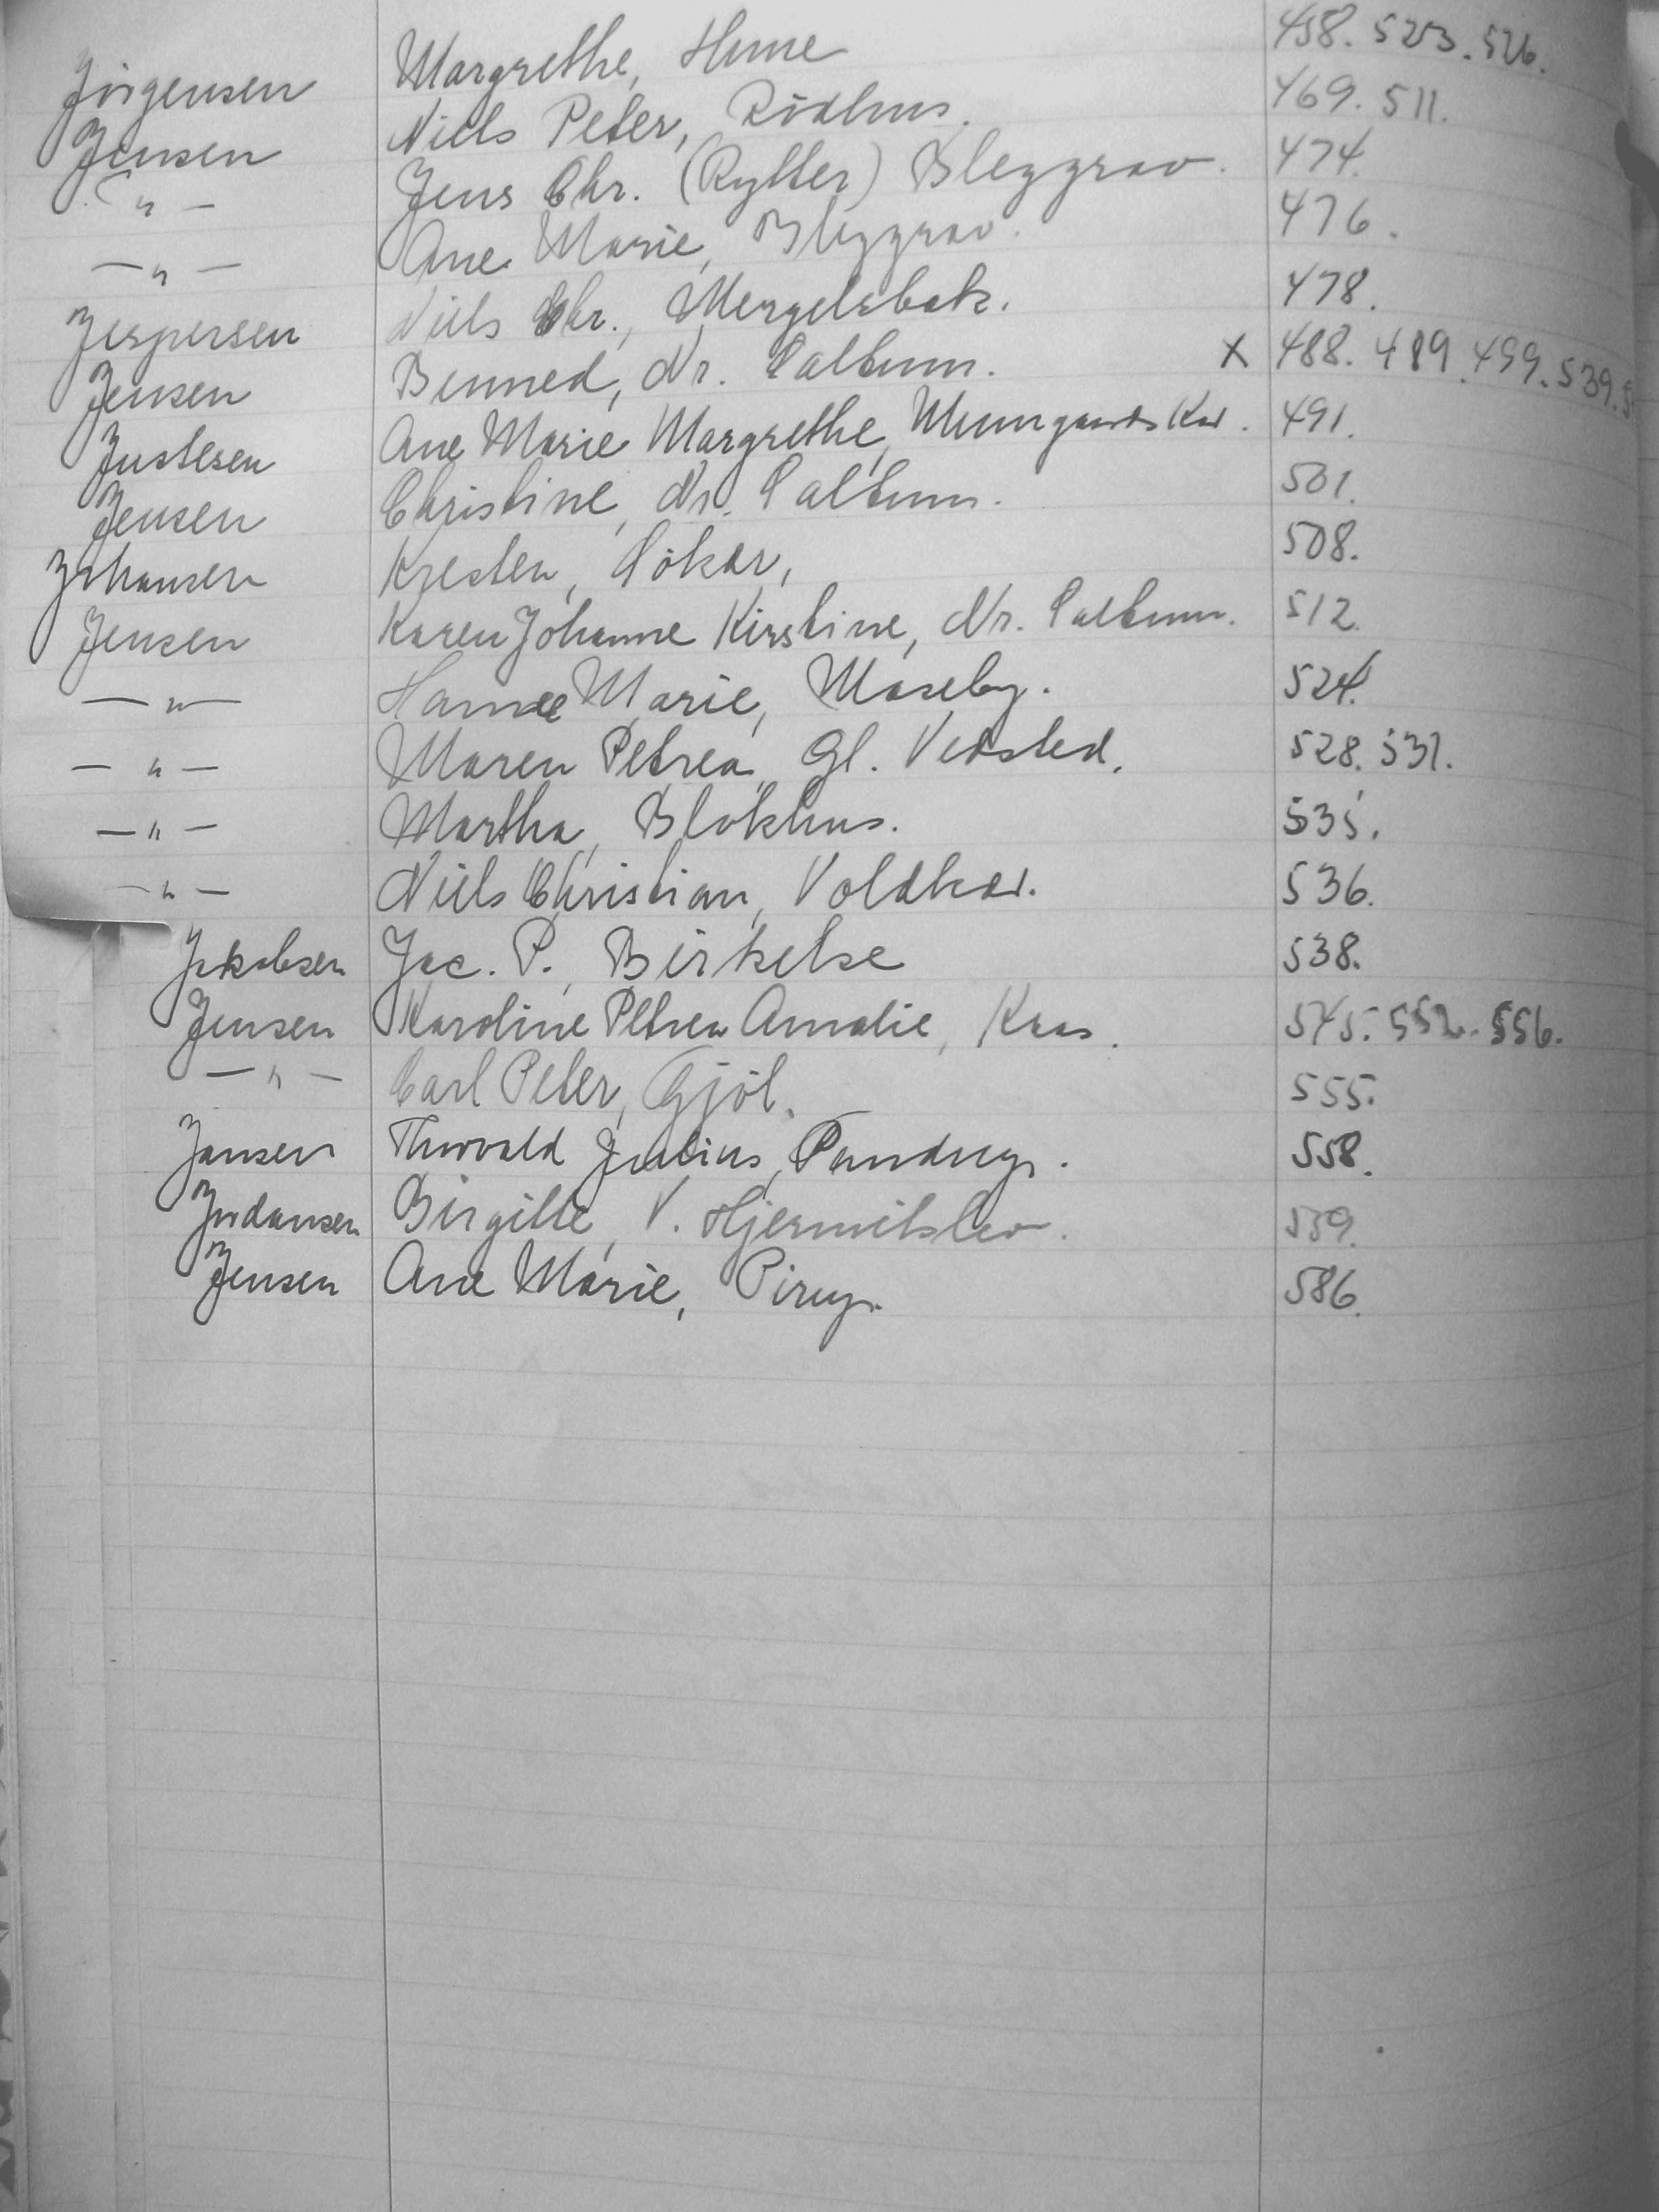 Jörgensen Margrethe, Hune 458. 523. 526.
Jensen Niels Peter, Rödhus. 469. 511.
— " — Jens Chr. (Rytter) Bleggrav. 474.
— " — Ane Marie, Bleggrav. 476.
Jespersen Niels Chr., Mergelsbak. 478.
Jensen Benned, Nr. Saltum. X 488. 489. 499. 539.
Justesen Ane Marie Margrethe, 491.
Jensen Christine, Nr. Saltum. 501.
Johansen Kresten, Sökær, 508.
Jensen Karen Johanne Kirstine, Nr. Saltum. 512.
— " — Hanne Marie, Moseby. 524.
— " — Maren Petrea, Gl. Vedsted. 528. 531.
— " — Martha, Blokhus. 535.
— " — Niels Christian, Voldkær. 536.
Jakobsen Jac. P. Birkelse 538.
Jensen Karoline Petrea Amalie, Kaas. 545. 552. 556.
— " — Carl Peter, Gjöl. 555.
Jansen Thorvald Julius, Pandrup. 558.
Jordansen Birgitte, V. Hjermitslev. 559.
Jensen Ane Marie, Pirup. 586.